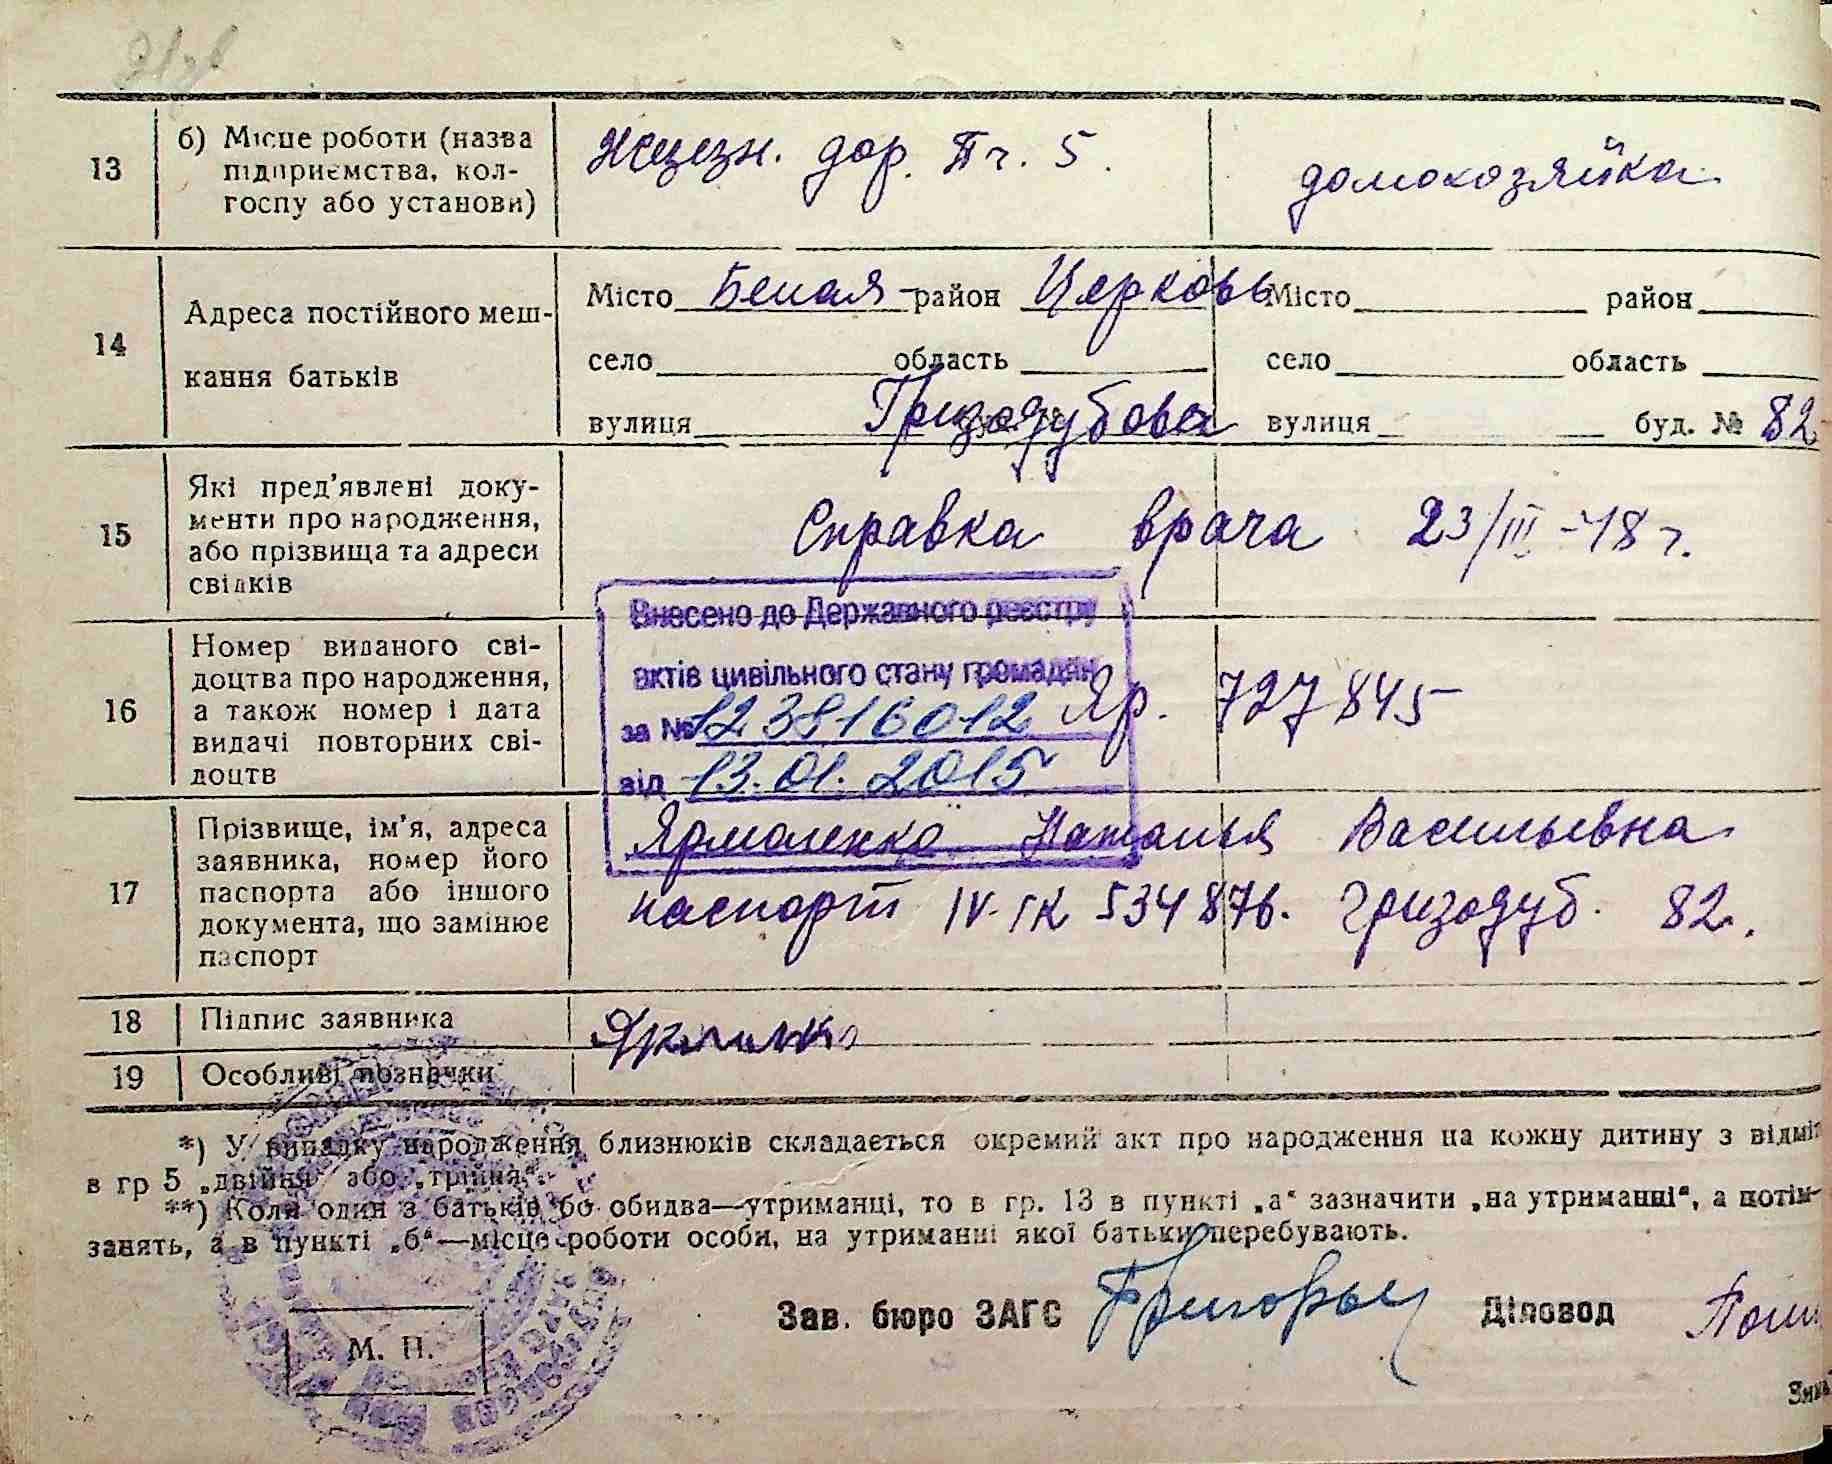 13
б) Місце роботи (назва
підприємства, кол-
госпу або установи)
Железн. дор. Пч. 5.
домохозяйка
14
Адреса постійного меш-
кання батьків
Місто Белая - район Церковь Місто район
село область село область
вулиця Гризодубова вулиця буд. № 82
15
Які пред'явлені доку-
менти про народження,
або прізвища та адреси
свідків
Справка врача 23/III-48 г.
16
Номер виданого сві-
доцтва про народження,
а також номер і дата
видачі повторних сві-
доцтв
Внесено до Державного реєстру
актів цивільного стану громадян
за № 123816012
від 13.01.2015
Яр. 727845
17
Прізвище, ім'я, адреса
заявника, номер його
паспорта або іншого
документа, що замінює
паспорт
Ярмоленко Наталья Васильевна
паспорт IV-ІК 534876. Гризодуб. 82.
18 Підпис заявника
19 Особливі позначки
*) У випадку народження близнюків складається окремий акт про народження на кожну дитину з відміт
в гр 5 „двійня" або „трійня".
**) Коли один з батьків бо обидва—утриманці, то в гр. 13 в пункті „а" зазначити „на утриманні", а потім-
занять, а в пункті „б"—місце роботи особи, на утриманні якої батьки перебувають.
Зав. бюро ЗАГС Діловод
М. П.